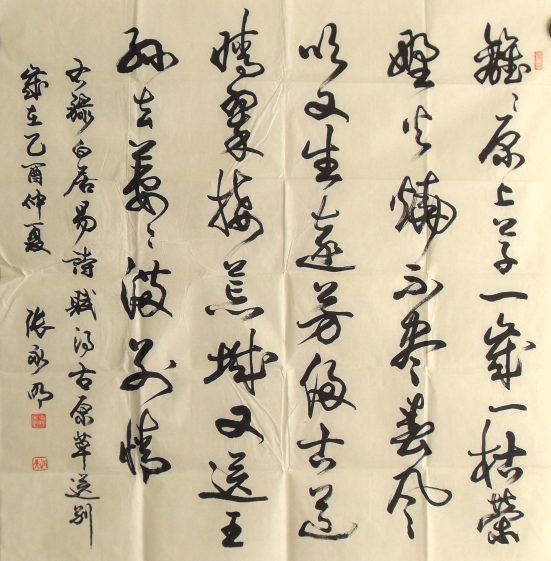 離〻原上草一歲一枯榮
野火燒不盡春風
吹又生遠芳侵古道
晴翠接荒城又送王
孫去萋〻滿別情
右錄白居易詩賦得古原草送別
歲在乙酉仲夏 張永明